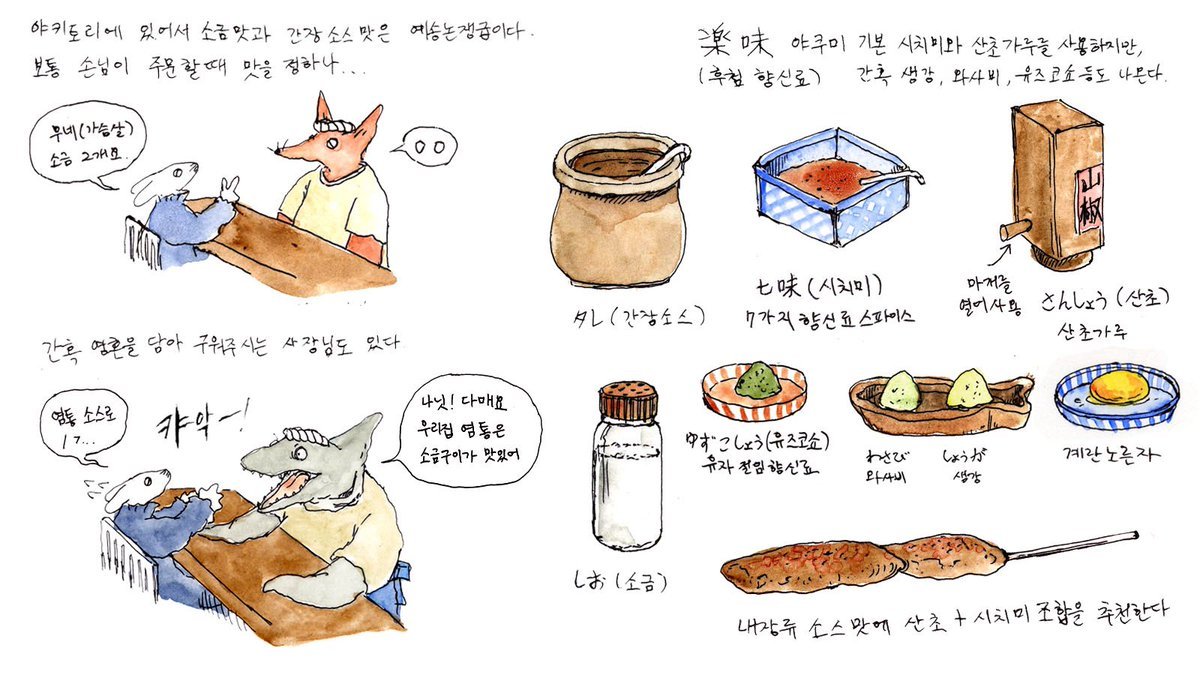 야키토리에 있어서 소금맛과 간장소스맛은 예송논쟁급이다.
보통 손님이 주문할때 맛을 정하나...
무네(가슴살)
소금 2개요.
간혹 영혼을 담아 구워주시는 사장님도 있다
염통 소스로
1..
캬악~!
나닛! 다매요
우리집 염통은
소금구이가 맛있어
楽味 야쿠미 기본 시치미와 산초가루를 사용하지만,
(후첨 향신료) 간혹 생강, 와사비, 유즈코쇼 등도 나온다.
タレ (간장소스)
七味 (시치미)
7가지 향신료 스파이스
山椒
마개를
열어 사용
さんしょう (산초)
산초가루
しお (소금)
ゆずこしょう(유즈코쇼)
유자 절임 향신료
わさび
와사비
しょうが
생강
계란 노른자
내장류 소스맛에 산초 + 시치미 조합을 추천한다